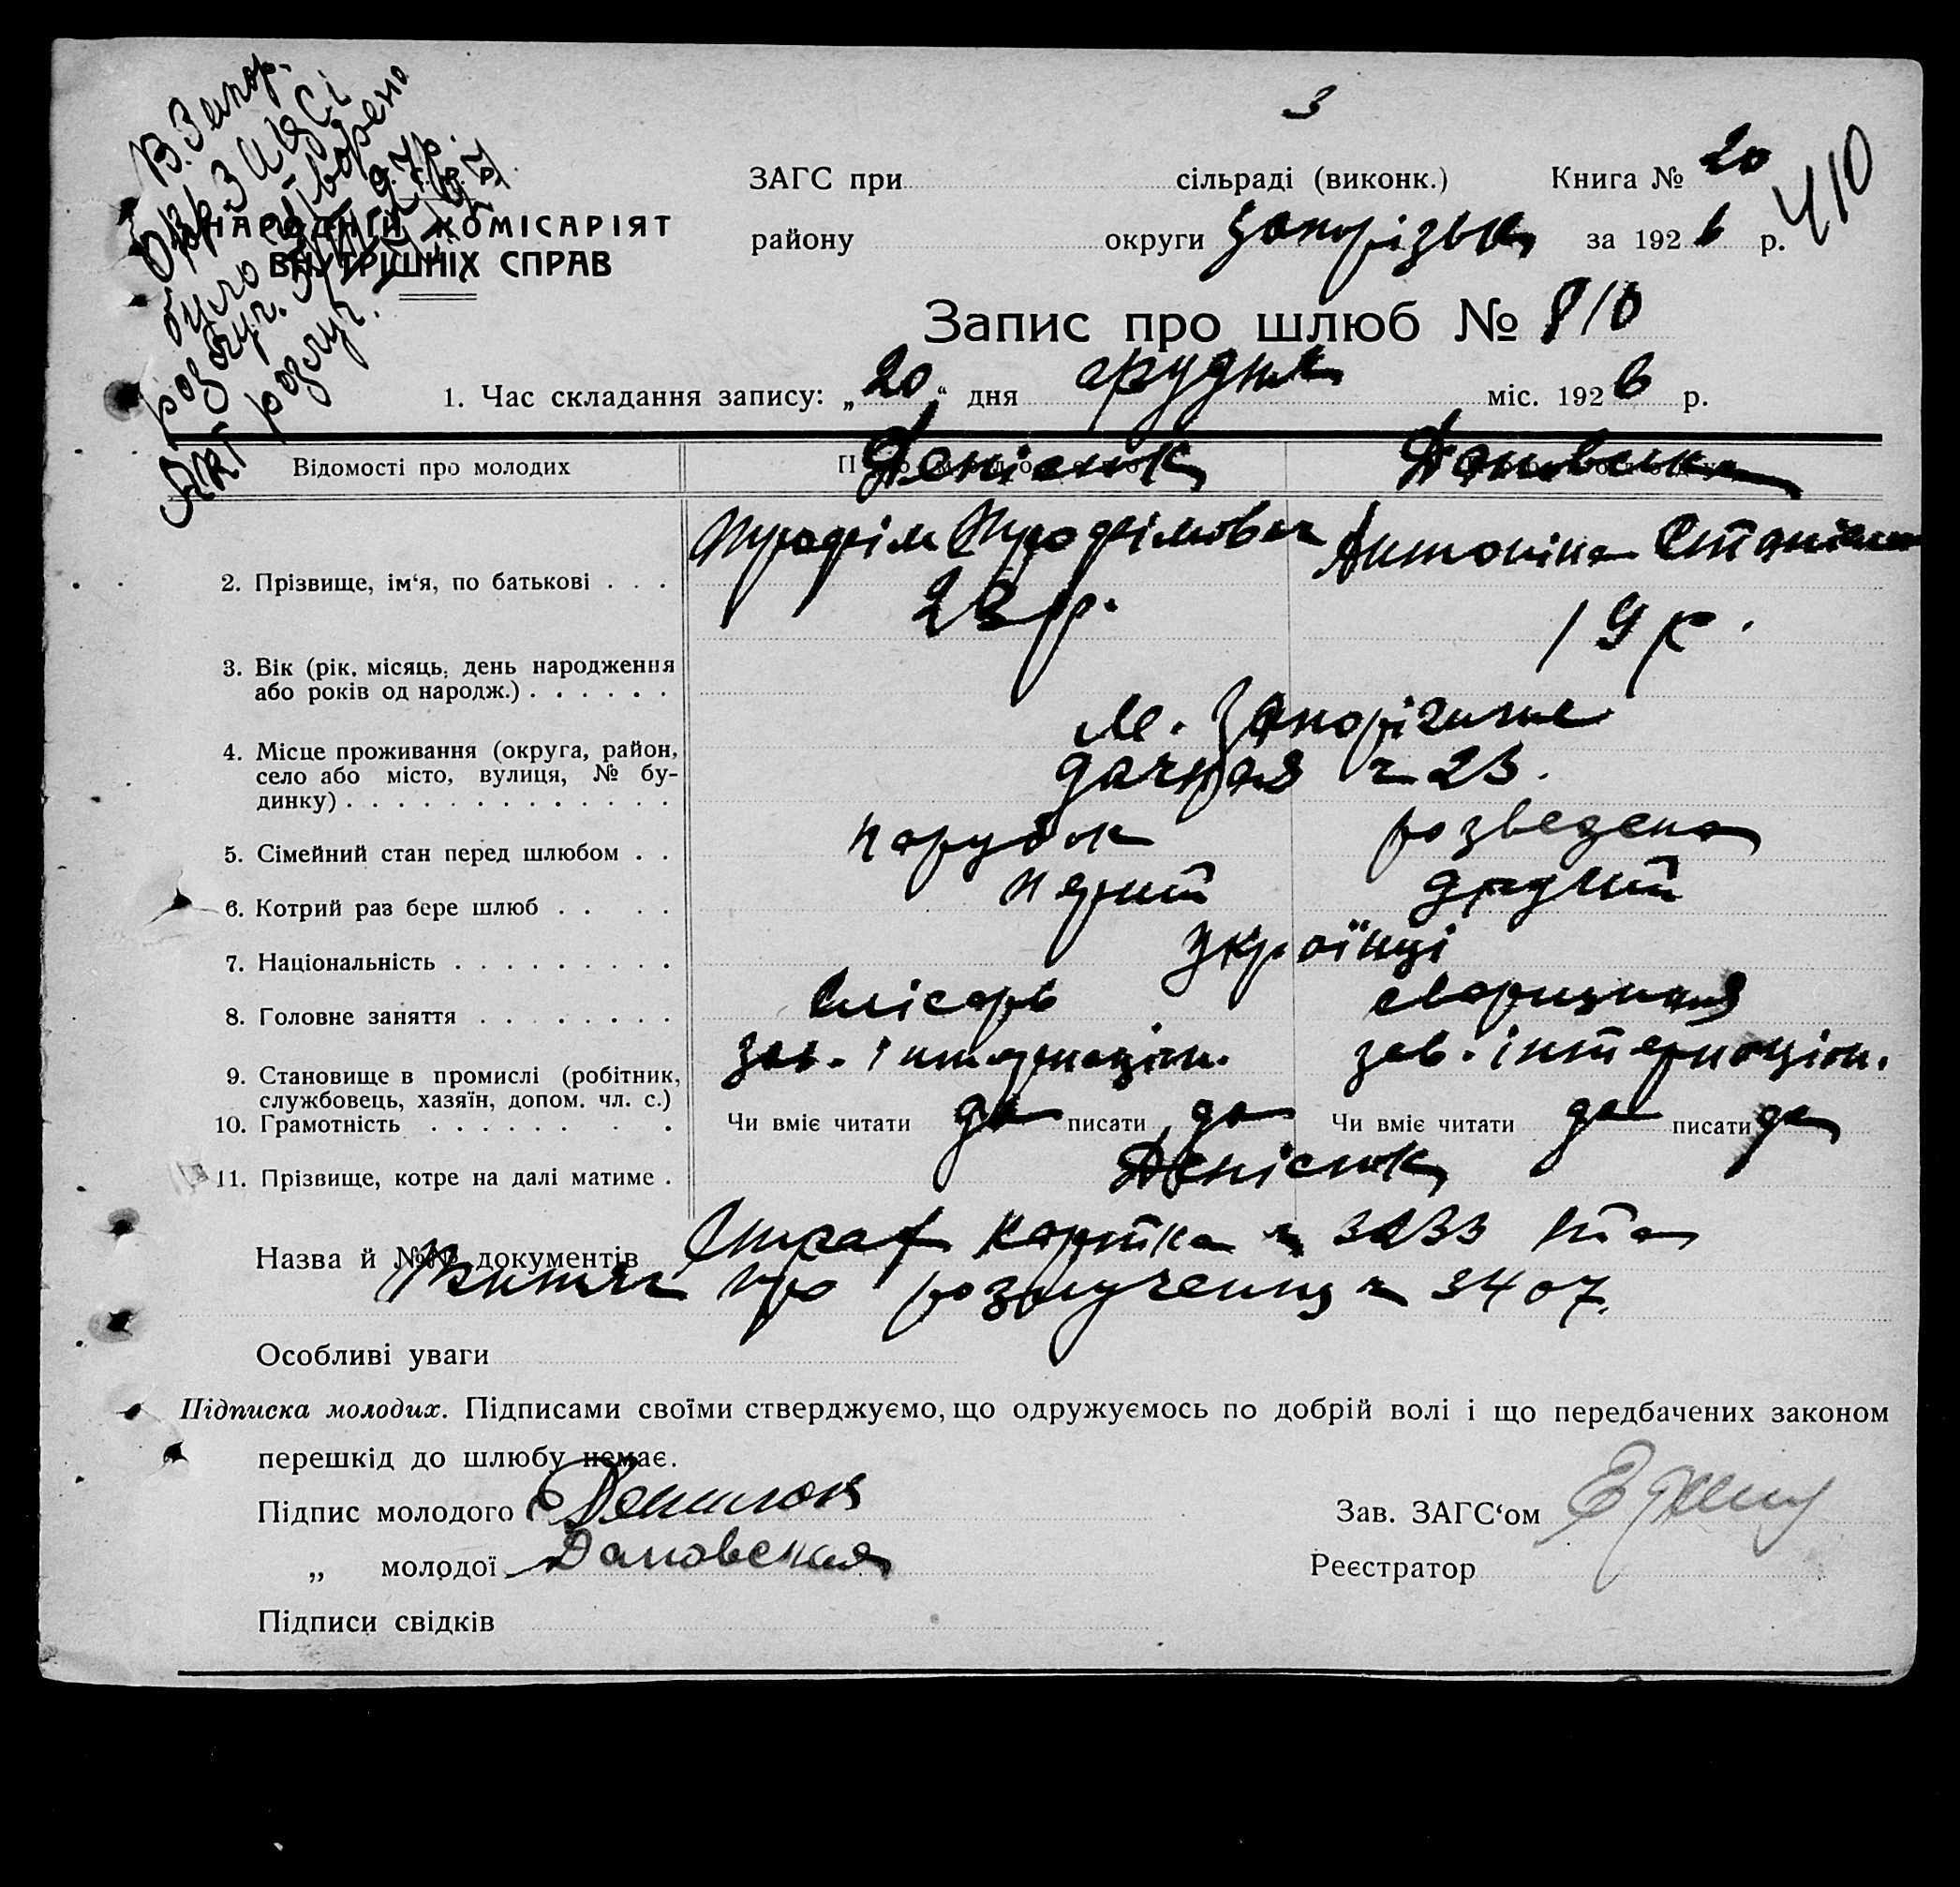 3
В. Запор.
Окр ЗАГСі
було
розлуч.
Акт розлуч.
НАРОДНІЙ КОМІСАРІЯТ
ВНУТРІШНІХ СПРАВ
ЗАГС при сільраді (виконк.) Книга № 20
410
району округи Запорізька за 1926 р.
Запис про шлюб № 810
1. Час складання запису: „20“ дня грудня міс. 1926 р.
Відомості про молодих Денісюк
2. Прізвище, ім‘я, по батькові . . . Трофім Трофімович Антоніна
23 р. 19 р.
3. Вік (рік, місяць, день народження
або років од народж.) . . . . . .
4. Місце проживання (округа, район, м. Запоріжжє
село або місто, вулиця, № бу- дачная 23.
динку) . . . . . . . . . . . . .
5. Сімейний стан перед шлюбом . . парубок розведена
6. Котрий раз бере шлюб . . . . другий
7. Національність . . . . . . . . . Українці
8. Головне заняття . . . . . . . . Слісарь
зав. інтернаціон. зав. інтернаціон.
9. Становище в промислі (робітник,
службовець, хазяїн, допом. чл. с.)
10. Грамотність . . . . . . . . Чи вміє читати да писати да Чи вміє читати да писати да
11. Прізвище, котре на далі матиме . Денісюк
Назва й №№ документів картка 3233 та
Витяг про розлучення 3407.
Особливі уваги
Підписка молодих. Підписами своїми стверджуємо, що одружуємось по добрій волі і що передбачених законом
перешкід до шлюбу немає.
Підпис молодого Денисюк Зав. ЗАГС‘ом
„ молодої Дановская Реєстратор
Підписи свідків